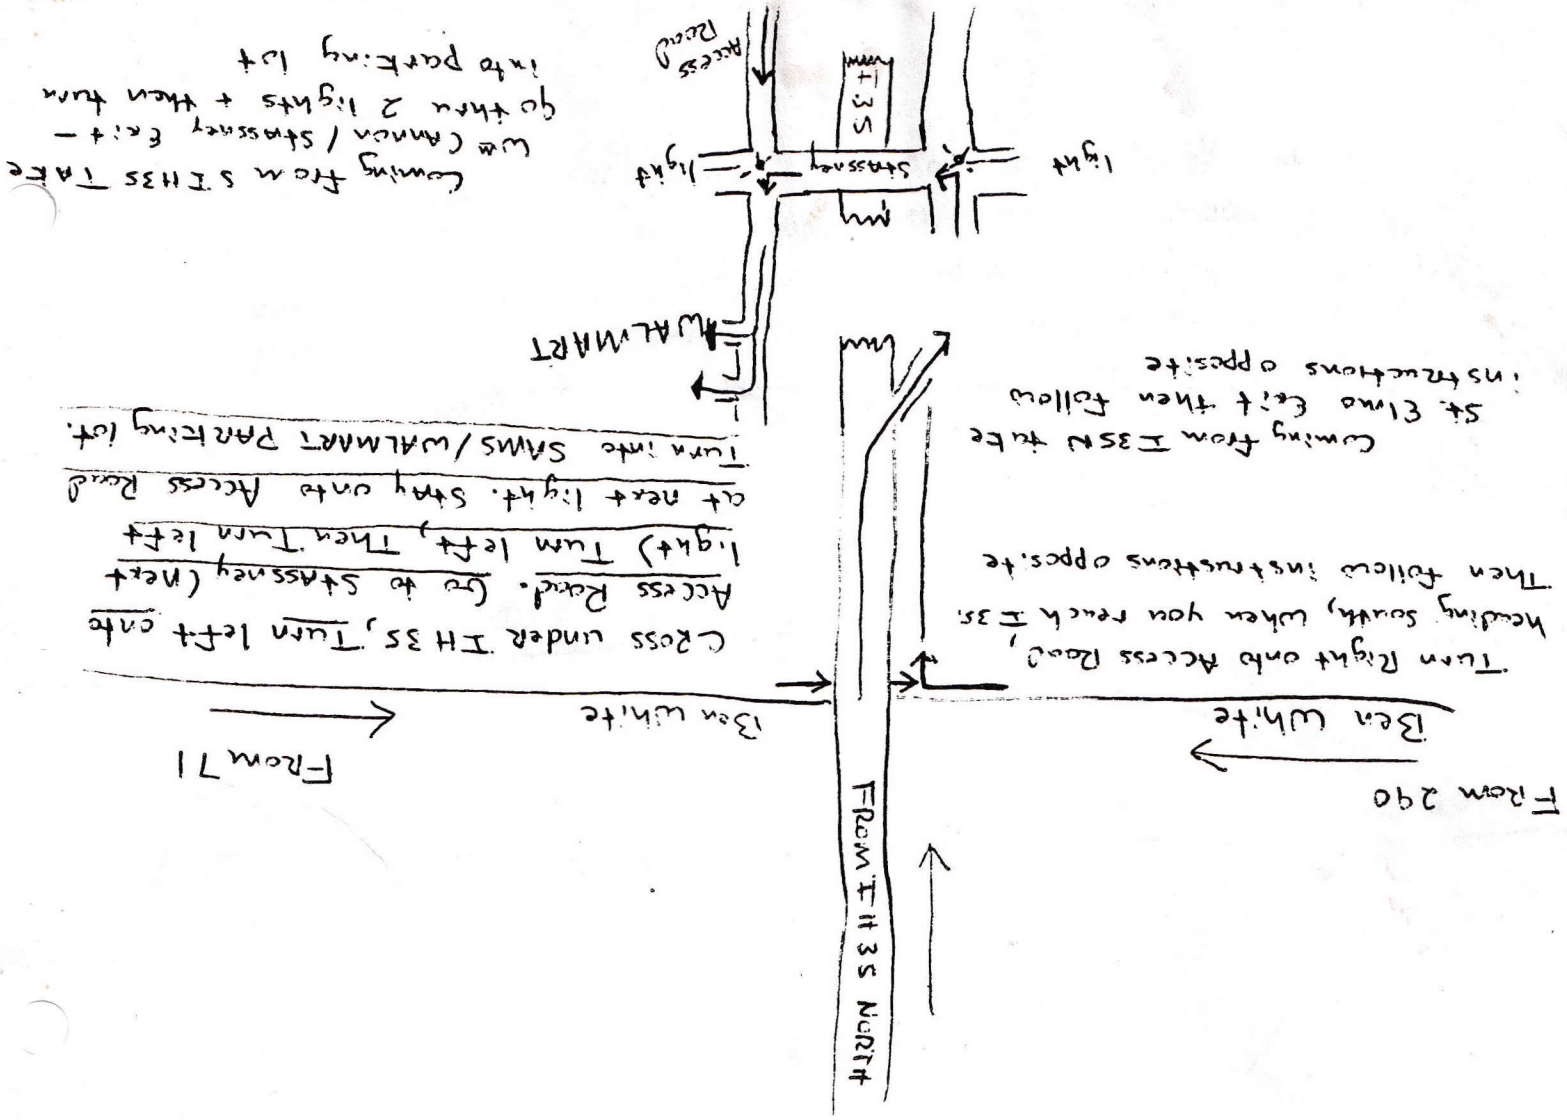 FROM IH 35 NORTH
From 290
Ben White
From 71
Ben White
Turn Right onto Access Road,
heading south, when you reach I35.
Then follow instrustions opposite
Cross under IH35, Turn left onto
Access Road. Go to Stassney (next
light) Turn left, Then Turn left
at next light. Stay onto Access Road
Turn into SAMS/WALMART PARKing lot.
Coming from I35N take
St. Elmo Exit then follow
instructions opposite
WALMART
light
Stassney
light
I 35
Access
Road
Coming from S IH35 TAKE
Wm Cannon / Stassney Exit -
go thru 2 lights + then turn
into parking lot